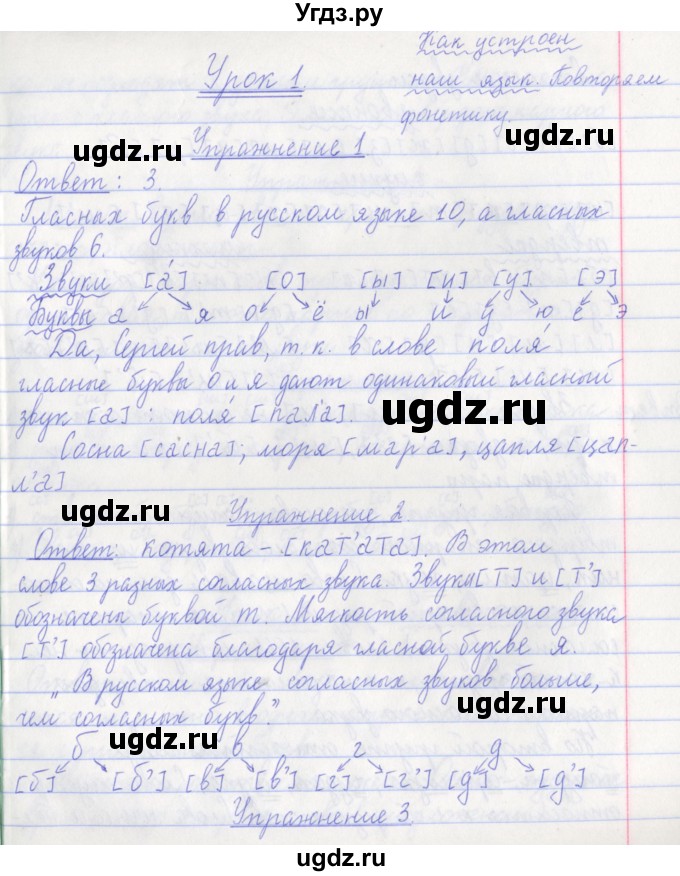 Угдз.ру
Как устроен
Урок 1.
наш язык. Повторяем
фонетику.
ugdz.ru
ugdz.ru
Упражнение 1
Ответ: 3.
Гласных букв в русском языке 10, а гласных
звуков 6.
Звуки [а́] [о] [ы] [и] [у] [э]
ugdz.ru
Буквы а я о ё ы и у ю е э
Да, Сергей прав, т.к. в слове поля́
гласные буквы о и я дают одинаковый гласный
звук [а] : поля́ [пал'а].
ugdz.ru
Сосна [сасна]; моря [мар'а], цапля [цап-
л'а]
ugdz.ru
Упражнение 2
Ответ: котята - [кат'ата]. В этом
слове 3 разных согласных звука. Звуки [т] и [т']
обозначены буквой т. Мягкость согласного звука
[т'] обозначена благодаря гласной букве я.
„В русском языке согласных звуков больше,
чем согласных букв."
ugdz.ru
ugdz.ru
б в г д
[б] [б'] [в] [в'] [г] [г'] [д] [д']
Упражнение 3
ugdz.ru